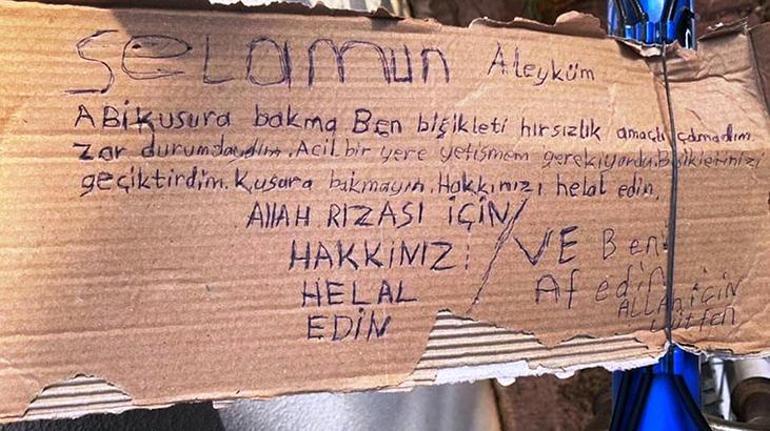 SELAMUN Aleyküm
ABi kusura bakma Ben bişikleti hırsızlık amaçlı çalmadım
zor durumdaydım. Acil bir yere yetişmem gerekiyordu. Bisikletinizi
geçiktirdim. Kusura bakmayın. Hakkınızı helal edin.
AllAH RIZASI İÇİN
HAKKINIZI
HELAL
EDİN
VE Beni
Af edin
ALLAH İÇİN
LÜTFEN